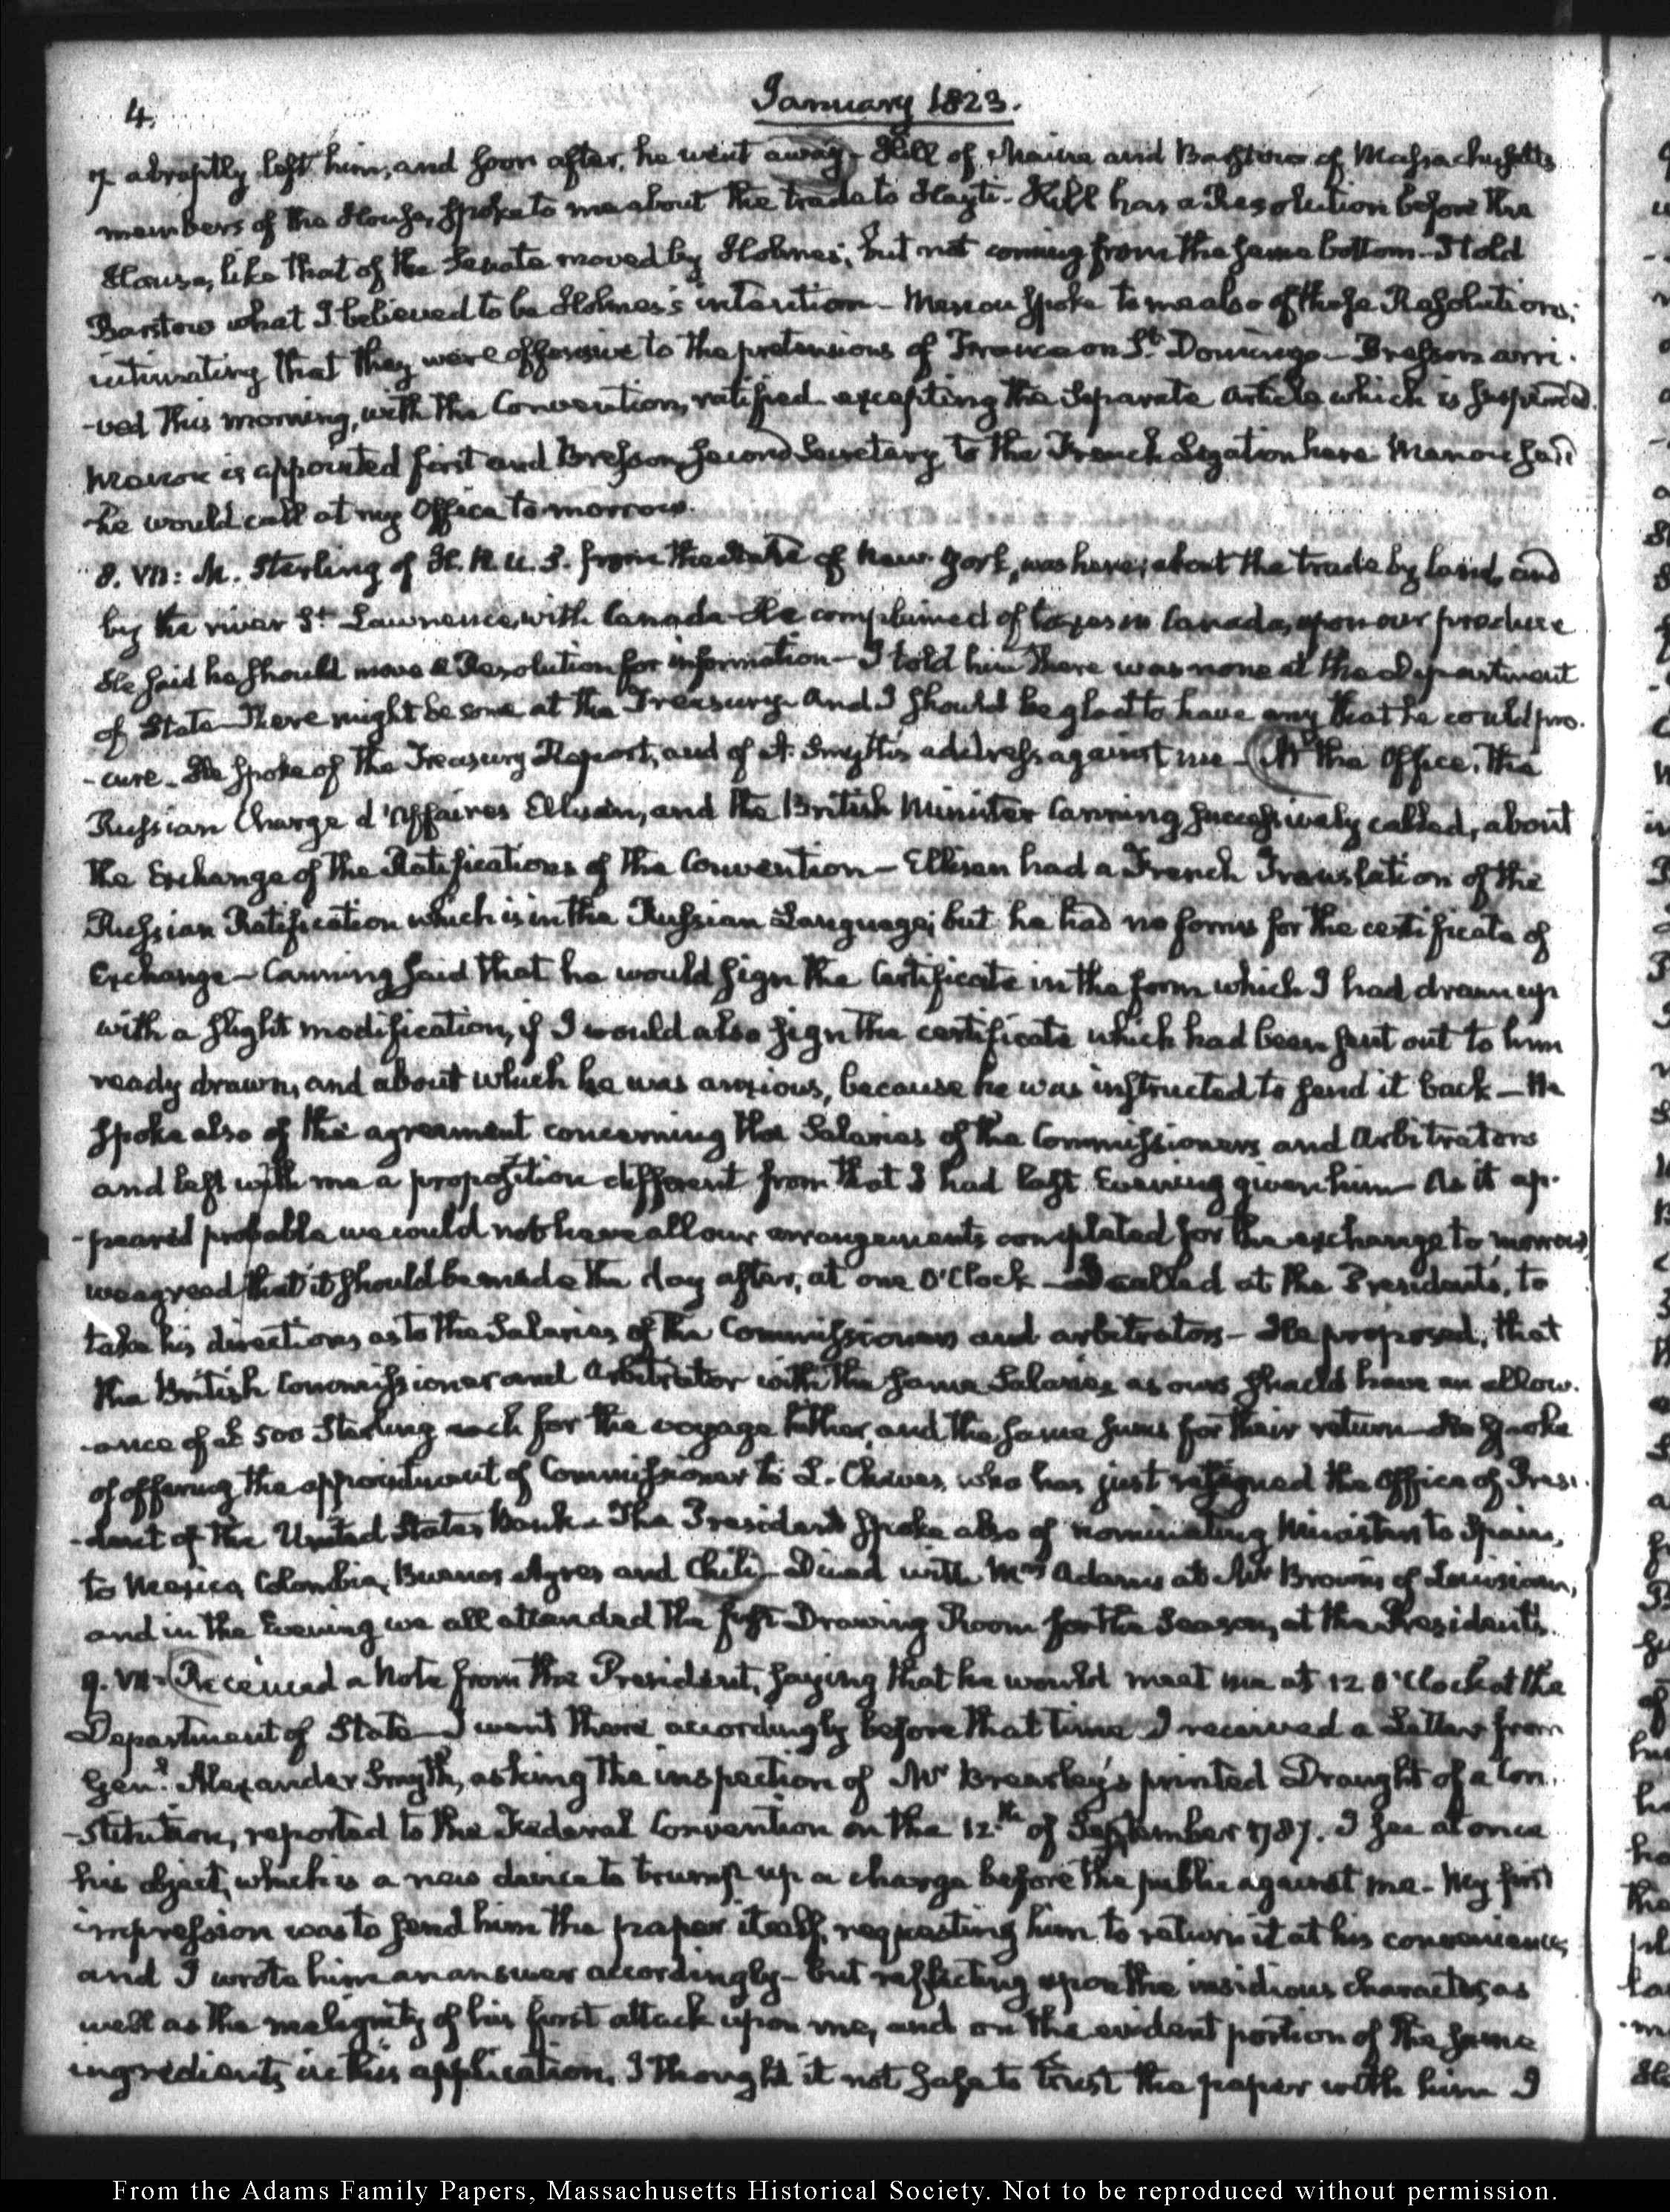 4.
January 1823.
I abruptly left him, and soon after, he went away – Hill of Maine and Barstow of Massachusetts
members of the House, spoke to me about the trade to Hayti – Hill has a Resolution before the
House, like that of the Senate moved by Holmes; but not coming from the same bottom – I told
Barstow what I believed to be Holmes's intention – Menou spoke to me also of those Resolutions;
intimating that they were offensive to the pretensions of France on St. Domingo – Bresson arri-
-ved this morning, with the Convention, ratified excepting the Separate Article which is suspended.
Menou is appointed first and Bresson second Secretary to the French Legation here. Menou said
he would call at my Office to-morrow.
8. VII: M. Sterling of H. R. U. S. from the State of New-York, was here; about the trade by land, and
by the river St. Lawrence, with Canada – He complained of taxes in Canada, upon our produce
He said he should move a Resolution for information – I told him there was none at the Department
of State – There might be some at the Treasury – And I should be glad to have any that he could pro-
-cure – He spoke of the Treasury Report, and of A. Smyth's address against me – At the Office, the
Russian Charge d'Affaires Ellisen, and the British Minister Canning successively called, about
the Exchange of the Ratifications of the Convention – Ellisen had a French Translation of the
Russian Ratification which is in the Russian Language; but he had no forms for the certificate of
Exchange – Canning said that he would sign the Certificate in the form which I had drawn up
with a slight modification, if I would also sign the certificate which had been sent out to him
ready drawn, and about which he was anxious, because he was instructed to send it back – He
spoke also of the agreement concerning the Salaries of the Commissioners and Arbitrators
and left with me a proposition different from that I had last Evening given him – As it ap-
-peared probable we could not have all our arrangements completed for the exchange to-morrow,
we agreed that it should be made the day after, at one O'Clock – I called at the President's, to
take his directions as to the Salaries of the Commissioners and arbitrators – He proposed, that
the British Commissioner and Arbitrator with the same Salaries as ours should have an allow-
-ance of £500 Sterling each for the voyage hither, and the same sums for their return – He spoke
of offering the appointment of Commissioner to L. Cheves, who has just resigned the Office of Presi-
-dent of the United States Bank – The President spoke also of nominating Ministers to Spain,
to Mexico, Colombia, Buenos Ayres and Chili – Dined with Mrs Adams at Mr Brown's of Louisiana,
and in the Evening we all attended the first Drawing Room for the Season, at the President's.
9. VII. Received a Note from the President, saying that he would meet me at 12 O'Clock at the
Department of State – I went there accordingly before that time I received a Letter from
Genl. Alexander Smyth, asking the inspection of Mr Brearley's printed Draught of a Con-
-stitution, reported to the Federal Convention on the 12.th of September 1787. I see at once
his object, which is a new device to trump up a charge before the public against me – My first
impression was to send him the paper itself, requesting him to return it at his convenience,
and I wrote him an answer accordingly – but reflecting upon the insidious character, as
well as the malignity of his first attack upon me, and on the evident portion of the same
ingredients in this application, I thought it not safe to trust the paper with him I
From the Adams Family Papers, Massachusetts Historical Society. Not to be reproduced without permission.